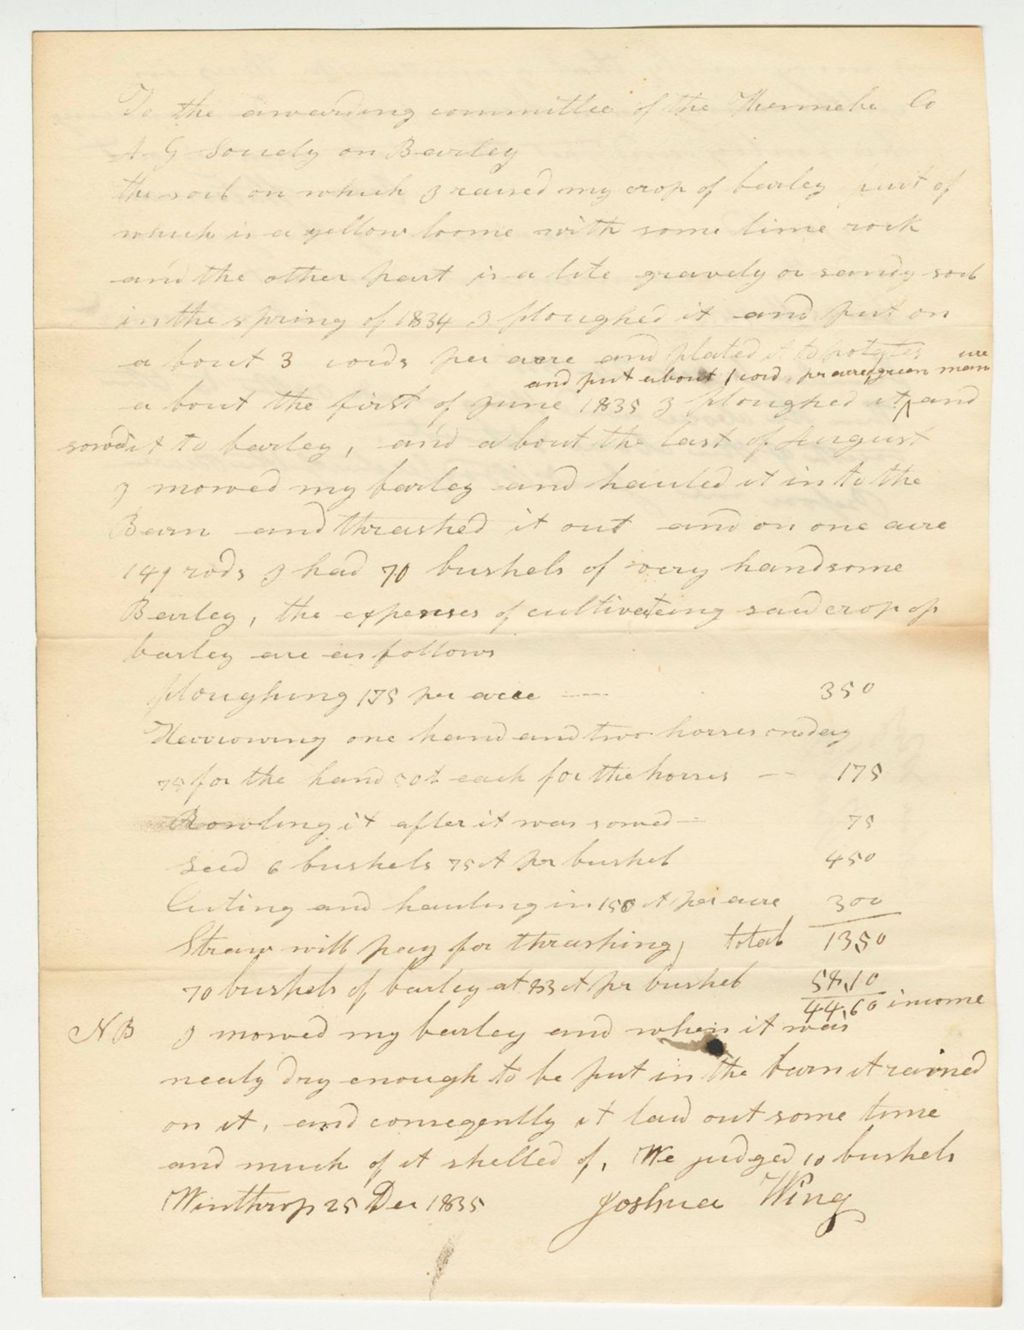 To the awarding committee of the Kennebec Co
A. G Society on Barley
the soil on which I raised my crop of barley part of
which is a yellow loome with some lime rock
and the other part is a lite gravely or sandy soil
in the spring of 1834 I ploughed it and put on
a bout 3 cords per acre and plated it to potates
and put about 1 cord, pr acre green manure
a bout the first of June 1835 I ploughed it and
sowed it to barley, and a bout the last of August
I mowed my barley and hauled it in to the
Barn and thrashed it out and on one acre
149 rods I had 70 bushels of very handsome
Barley, the expenses of cultivateing said crop of
barley are as follows
ploughing 175 per acre 350
Harrowing one hand and two horses on day
75 for the hand 50 ct each for the horses 175
Rowling it after it was sowed 75
Seed 6 bushels 75 ct pr bushel 450
Cuting and hauling in 150 ct per acre 300
Straw will pay for thrashing, total 1350
70 bushels of barley at 83 ct pr bushel 58,10
44,60 income
NB I mowed my barley and when it was
nealy dry enough to be put in the barn it rained
on it, and conseqently it laid out some time
and much of it shelled of, We judged 10 bushels
Winthrop 25 Dec 1835 Joshua Wing